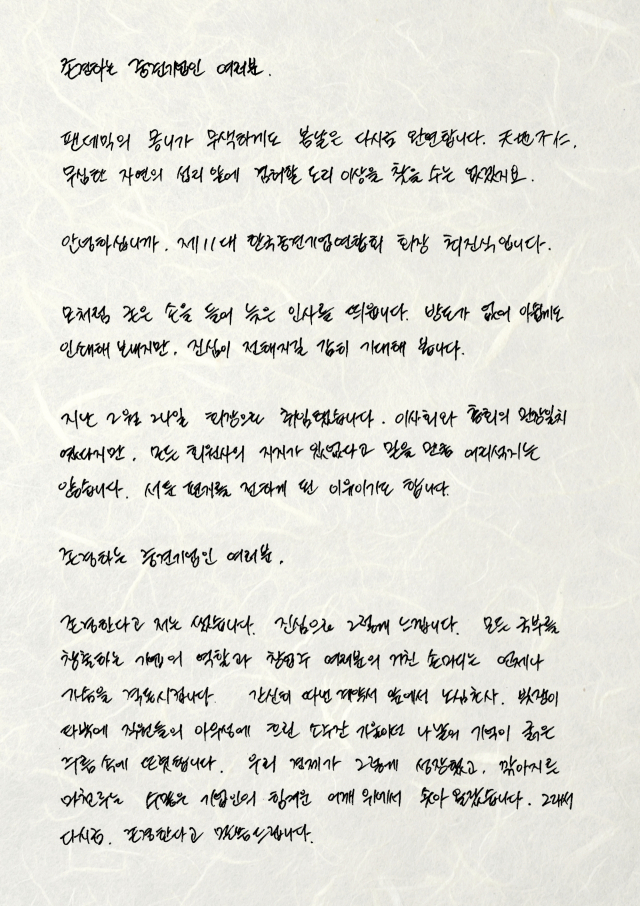 존경하는 중견기업인 여러분.
팬데믹의 몽니가 무색하게도 봄날은 다시금 완연합니다. 天地不仁,
무심한 자연의 섭리 앞에 겸허할 도리 이상을 찾을 수는 없겠지요.
안녕하십니까. 제11대 한국중견기업연합회 회장 최진식입니다.
모처럼 굳은 손을 들어 늦은 인사를 띄웁니다. 방도가 없어 아쉽게도
인쇄해 보내지만, 진심이 전해지길 감히 기대해 봅니다.
지난 2월 24일 회장으로 취임했습니다. 이사회와 총회의 만장일치
였다지만, 모든 회원사의 지지가 있었다고 믿을 만큼 어리석지는
않습니다. 서툰 편지를 전하게 된 이유이기도 합니다.
존경하는 중견기업인 여러분.
존경한다고 저는 썼습니다. 진심으로 그렇게 느낍니다. 모든 국부를
창출하는 기업의 역할과 창업주 여러분의 거친 손마디는 언제나
가슴을 격동시킵니다. 간신히 따낸 계약서 앞에서 노심초사, 빗줄이
타박에 직원들의 아우성에 흐린 소주잔 기울이던 나날의 기억이 굵은
주름 속에 또렷합니다. 우리 경제가 그렇게 성장했고, 깎아지른
마천루는 수많은 기업인의 힘겨운 어깨 위에서 솟아 올랐습니다. 그래서
다시금, 존경한다고 말씀드립니다.